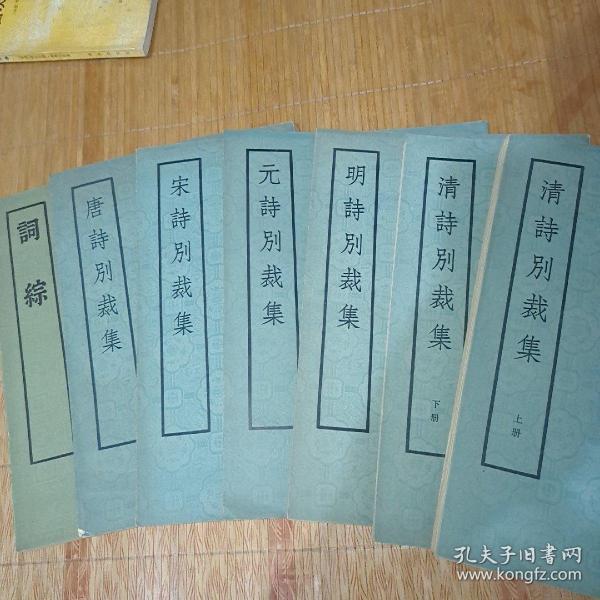 詞綜
唐詩別裁集
宋詩別裁集
元詩別裁集
明詩別裁集
清詩別裁集
下册
清詩別裁集
上册
孔夫子旧书网
www.kongfz.com